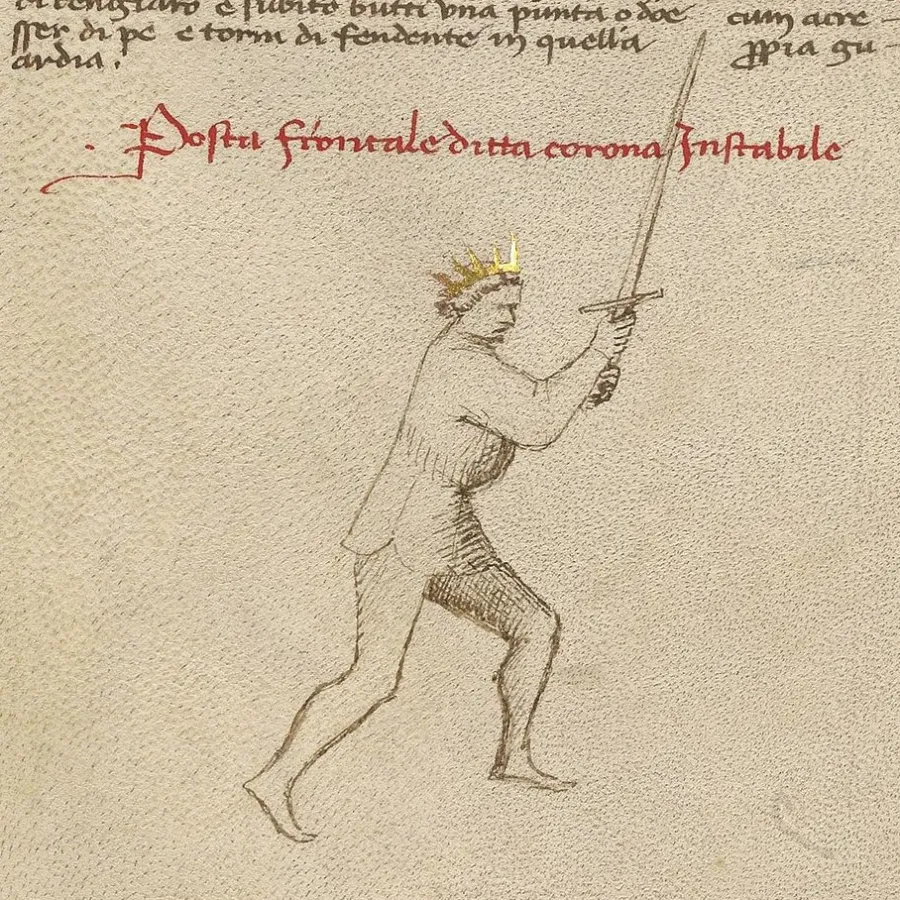 e subito butti una punta o doe
sser di pe e torni di fendente in quella
ardia.
cum acre-
ppia gu-
Posta frontale ditta corona Instabile